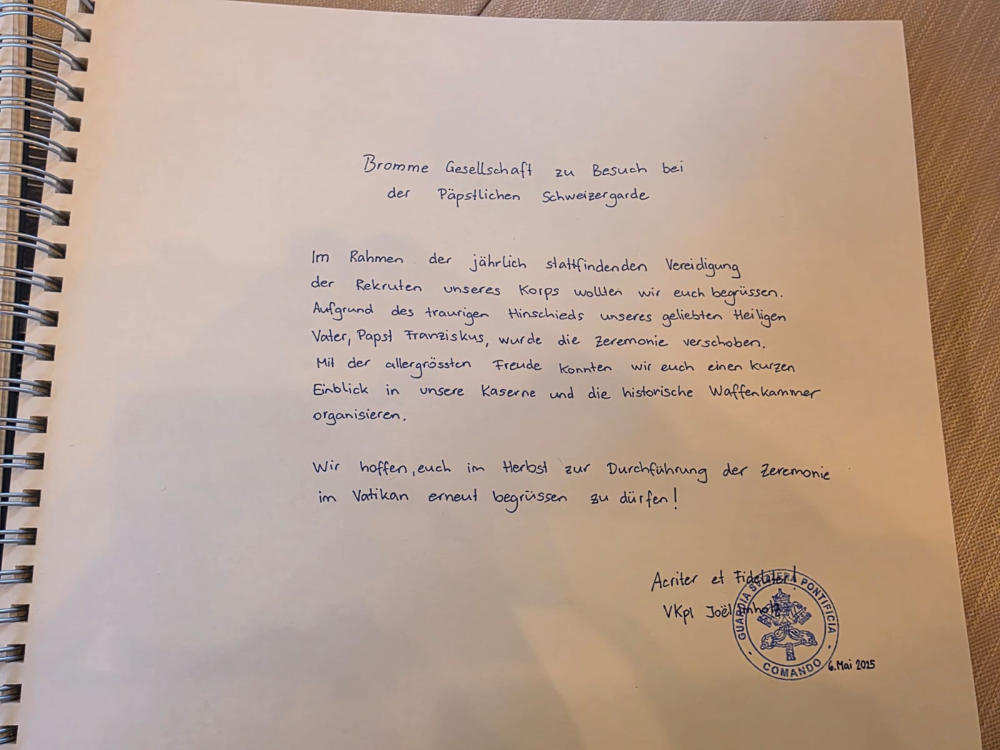 Bromme Gesellschaft zu Besuch bei
der Päpstlichen Schweizergarde
Im Rahmen der jährlich stattfindenden Vereidigung
der Rekruten unseres Korps wollten wir euch begrüssen.
Aufgrund des traurigen Hinschieds unseres geliebten Heiligen
Vater, Papst Franziskus, wurde die Zeremonie verschoben.
Mit der allergrössten Freude konnten wir euch einen kurzen
Einblick in unsere Kaserne und die historische Waffenkammer
organisieren.
Wir hoffen, euch im Herbst zur Durchführung der Zeremonie
im Vatikan erneut begrüssen zu dürfen!
Acriter et Fideliter!
VKpl Joël
GUARDIA SVIZZERA PONTIFICIA
COMANDO
6. Mai 2025